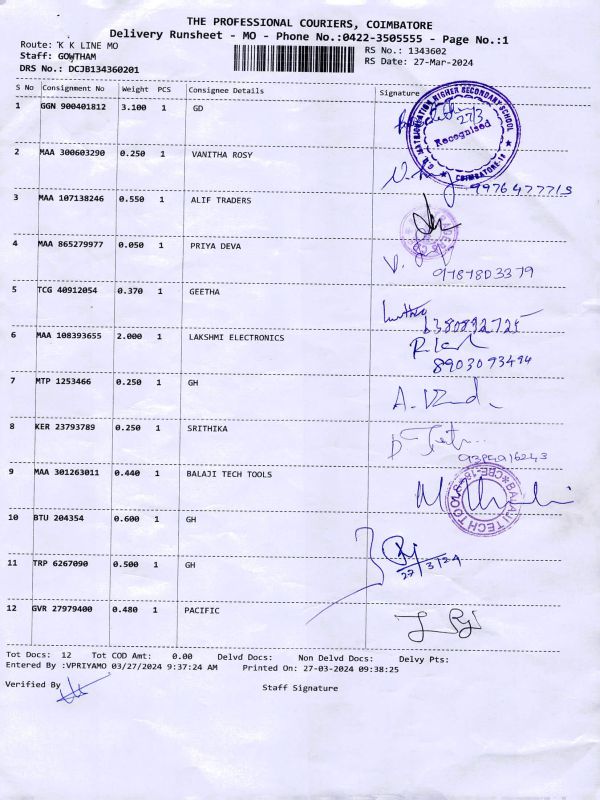 THE PROFESSIONAL COURIERS, COIMBATORE
Delivery Runsheet - MO - Phone No.:0422-3505555 - Page No.:1
Route: K K LINE MO RS No.: 1343602
Staff: GOWTHAM RS Date: 27-Mar-2024
DRS No.: DCJB134360201
S No Consignment No Weight PCS Consignee Details Signature
1 GGN 900401812 3.100 1 GD
27/3
MATRICULATION HIGHER SECONDARY SCHOOL
Recognised
COIMBATORE-18
2 MAA 300603290 0.250 1 VANITHA ROSY
9976477715
3 MAA 107138246 0.550 1 ALIF TRADERS
4 MAA 865279977 0.050 1 PRIYA DEVA
5 TCG 40912054 0.370 1 GEETHA
6 MAA 108393655 2.000 1 LAKSHMI ELECTRONICS
8903073494
7 MTP 1253466 0.250 1 GH
8 KER 23793789 0.250 1 SRITHIKA
9 MAA 301263011 0.440 1 BALAJI TECH TOOLS
BALAJI TECH TOOLS CBE-18
10 BTU 204354 0.600 1 GH
27/3/24
11 TRP 6267090 0.500 1 GH
12 GVR 27979400 0.480 1 PACIFIC
Tot Docs: 12 Tot COD Amt: 0.00 Delvd Docs: Non Delvd Docs: Delvy Pts:
Entered By :VPRIYAMO 03/27/2024 9:37:24 AM Printed On: 27-03-2024 09:38:25
Verified By
Staff Signature